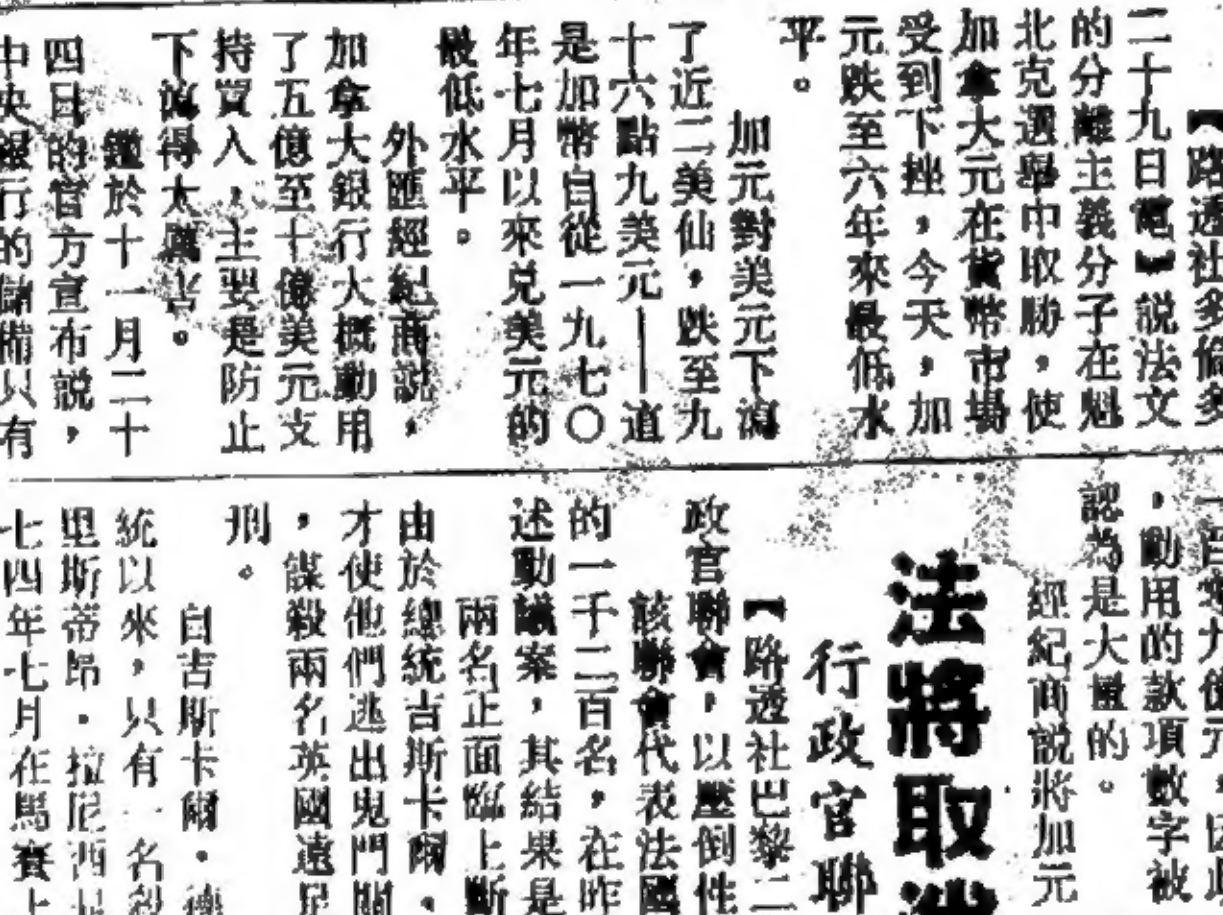 【路透社多倫多
二十九日電】說法文
的分離主義分子在魁
北克選舉中取勝，使
加拿大元在貨幣市場
受到下挫，今天，加
元跌至六年來最低水
平。
加元對美元下瀉
了近二美仙，跌至九
十六點九美元——道
是加幣自從一九七〇
年七月以來兌美元的
最低水平。
外匯經紀商說，
加拿大銀行大概動用
了五億至十億美元支
持買入，主要是防止
下瀉得太厲害。
鑑於十一月二十
四日的官方宣布說，
中央銀行的儲備只有
，動用的款項數字被
認為是大量的。
經紀商說將加元
法將取
行政官聯
【路透社巴黎二
政官聯會，以壓倒性
該聯會代表法國
的一千二百名，在昨
述動議案，其結果是
兩名正面臨上斷
由於總統吉斯卡爾．
才使他們逃出鬼門關
，謀殺兩名英國遠足
刑。
自吉斯卡爾．德
統以來，只有一名殺
里斯蒂昂．拉尼西
七四年七月在馬賽上